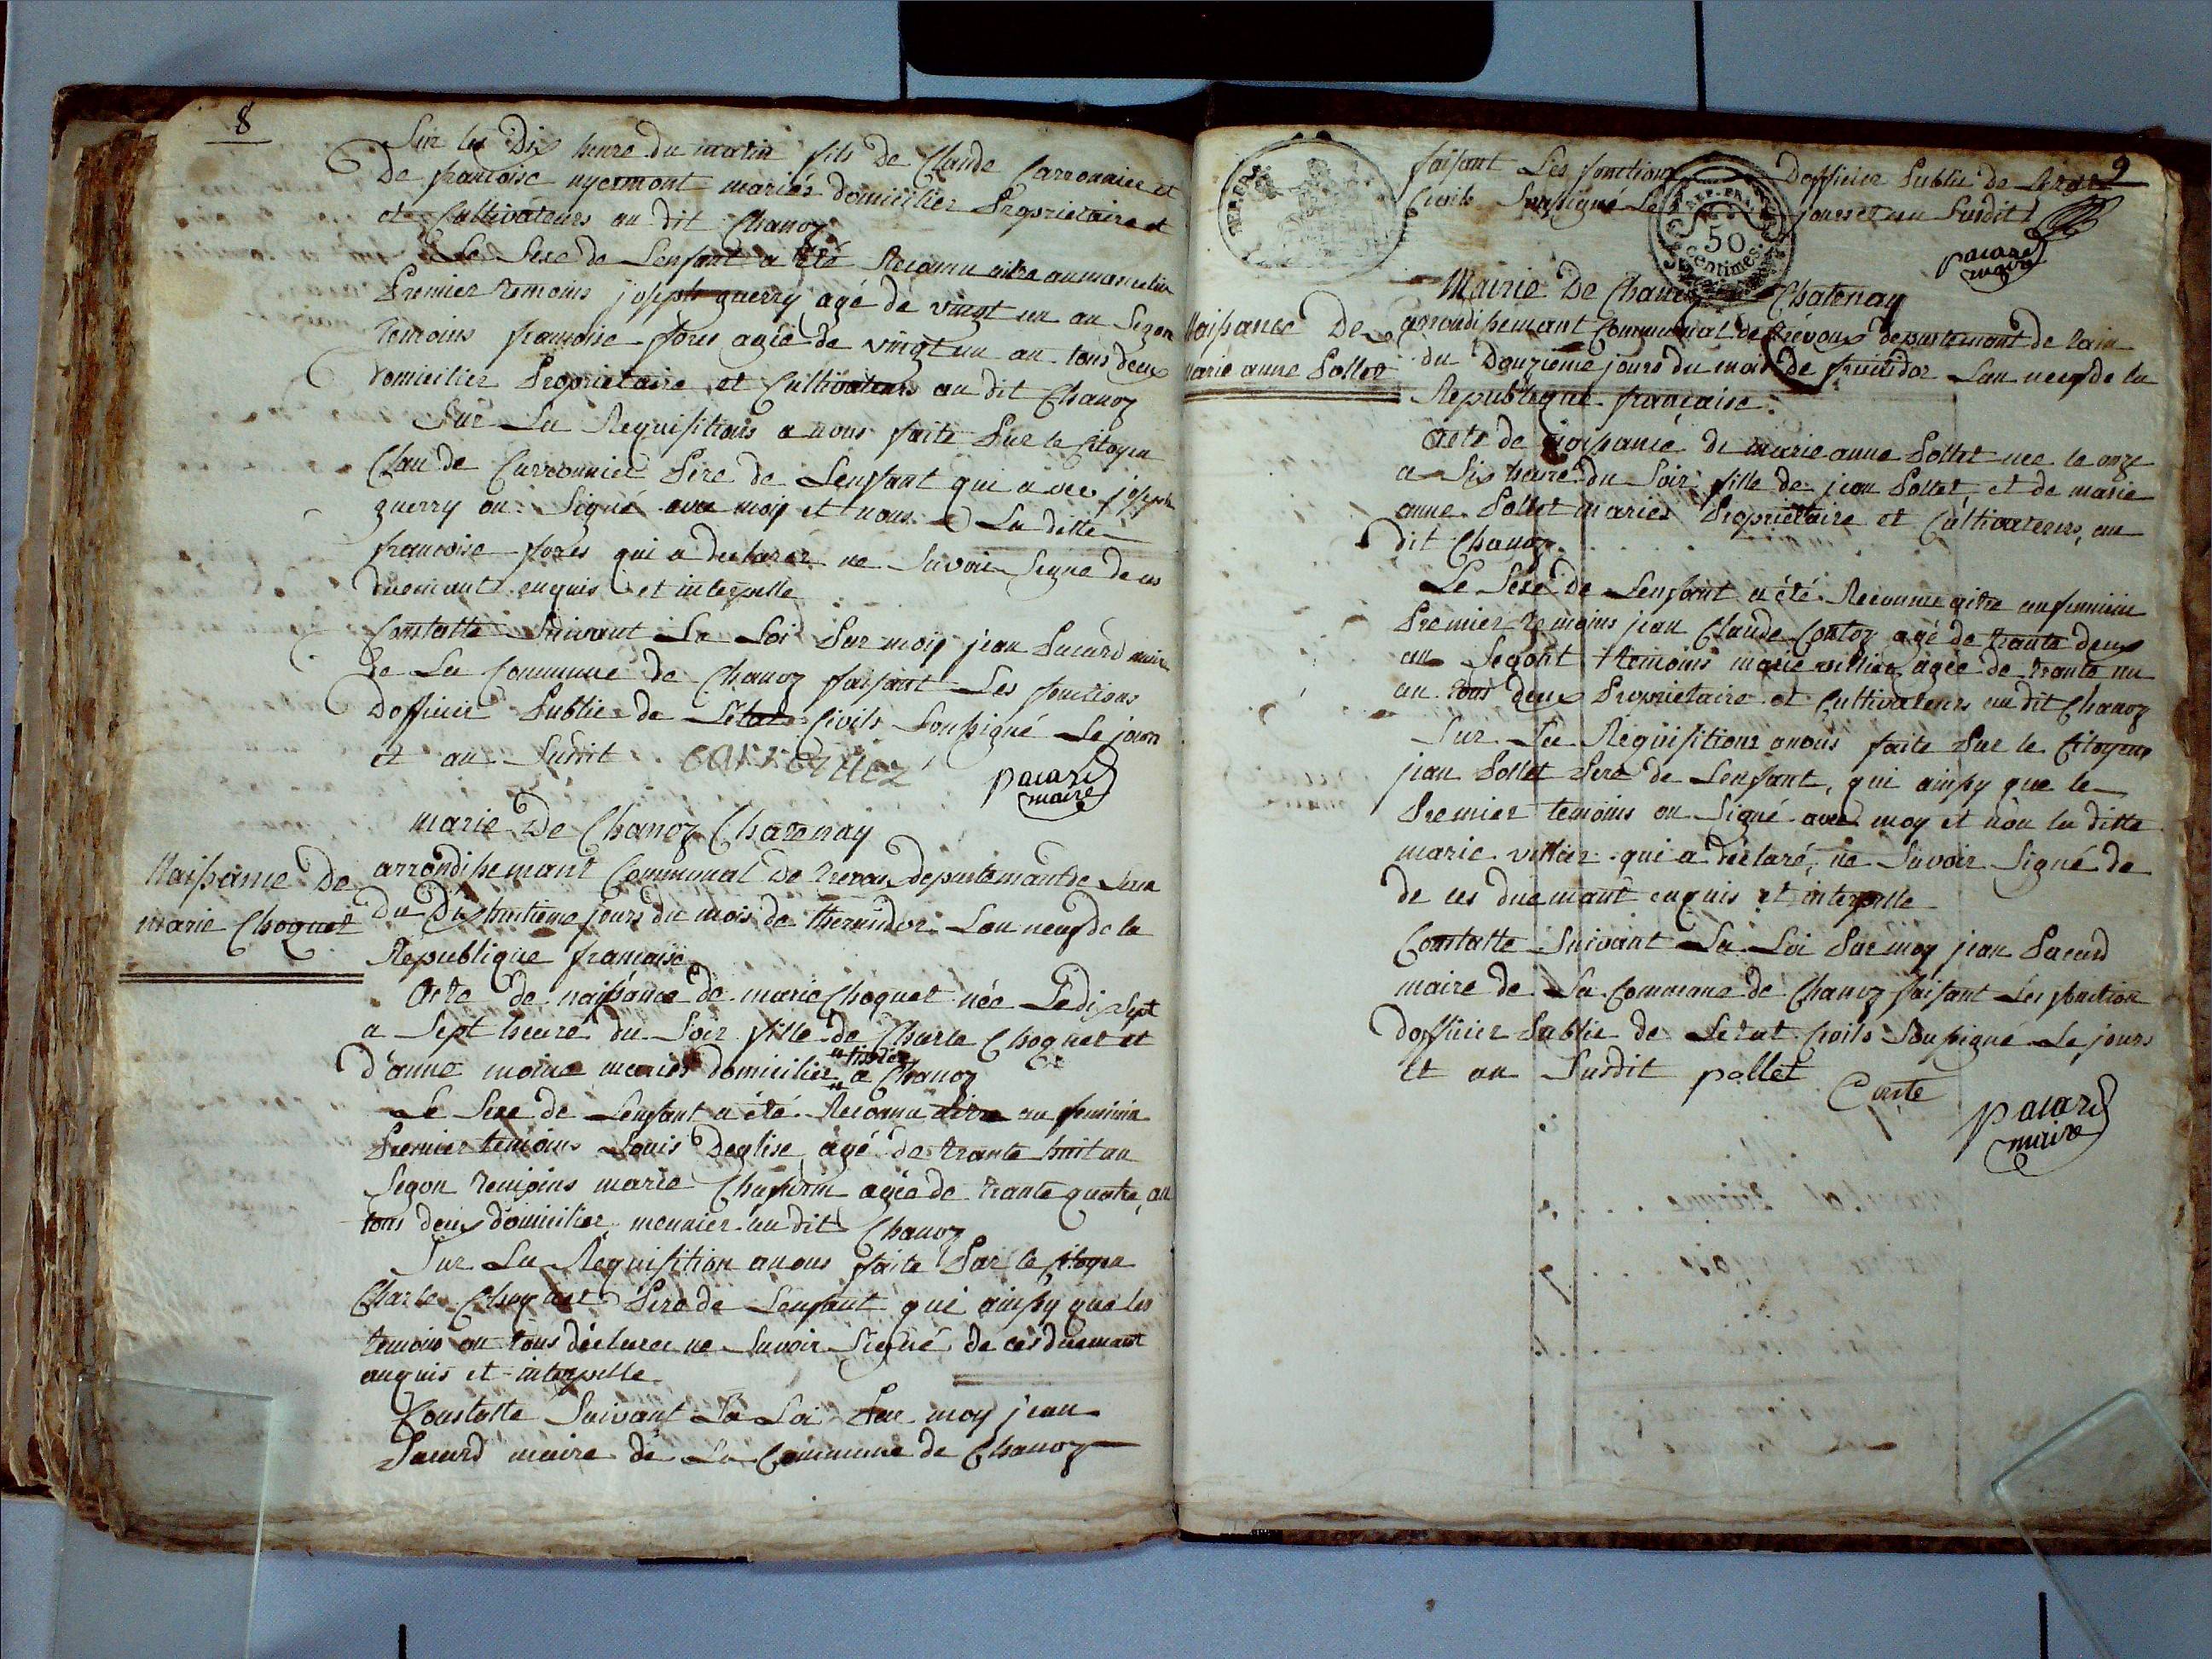 8
Sur les Dix heure du matin fils de Claude Carronnier et
De francoise nyermont mariés domicilier Proprietaire et
et Cultivateurs au dit Chanoz
Le Sexe de Lenfant a été Reconnu aitre au masculin
Premier temoins joseph guerry agé de vingt un an Segon
temoins francoise fores agée de vingt un an tous deux
domicilier Proprietaire et Cultivateurs au dit Chanoz
Sur La Requisitions a nous faite Par le Citoyen
Clau de Carronnier Pere de Lenfant qui a vec joseph
guerry on Signé avec moy et nous La ditte
francoise fores qui a declarer ne Savoir Signe de ces
duemant enquis et interpelle
Constatte Suivant La Loi Par moy jean Pacard maire
de La Commune de Chanoz faisant Les fonctions
Dofficier Public de Letat Civils Soussigné Le jours
et an Susdit
pacard
maire
marie De Chanoz Chatenay
Naissance De
marie Choquet
arrondissemant Communal De trevoux departemant de Lain
Du Dix huitieme jours du mois de thermidor Lan neuf de la
Republique francaise
Acte de naissance de marie Choquet née Le dix sept
a Sept heure du Soir fille de Charle Choquet et
d'anne moine mariés domicilier a Chanoz
Le Sexe de Lenfant a été Reconnu au feminin
Premier temoins Louis Deglise agé de trante huit an
Segon temoins marie agée de trante quatre an
tous deux domicilier meunier au dit Chanoz
Sur La Requisition a nous faite Par le Citoyen
Charle Choquet Pere de Lenfant qui ainssy que les
temoins on tous déclarer ne Savoir Signé de ces duemant
anquis et interpelle
Constatte Suivant La Loi Par moy jean
Pacard maire de La Commune de Chanoz
9
faisant Les fonctions Dofficier Public de Letat
Civils Soussigné Le jours et an Susdit
50
centimes.
pacard
maire
Mairie De Chanoz Chatenay
Naissance De
Marie anne Pollet
arrondissemant Communal de trévoux departemant de Lain
du Douzieme jours du mois de fructidor Lan neuf de la
Republique francaise
Acte de naissance de marie anne Pollet nee le onze
a Six heure du Soir fille de jean Pollet et de marie
anne Pollet mariés Proprietaire et Cultivateurs, au
dit Chanoz
Le Sexe de Lenfant a été Reconnu aitre au feminin
Premier temoins jean Claude Contoz agé de trante deux
an Segont temoins marie villier agée de trante un
an tous deux Proprietaire et Cultivateurs au dit Chanoz
Sur La Requisitions anous faite Par le Citoyens
jean Pollet Pere de Lenfant, qui ainssy que le
Premier temoins on Signé avec moy et non la ditte
marie villier qui a déclaré, ne Savoir Signé de
de ces duemant enquis et interpelle
Constatte Suivant La Loi Par moy jean Pacard
maire de La Commune de Chanoz faisant Les fonction
dofficier Public de Letat Civils Soussigné Le jours
et an Susdit pollet
pacard
maire